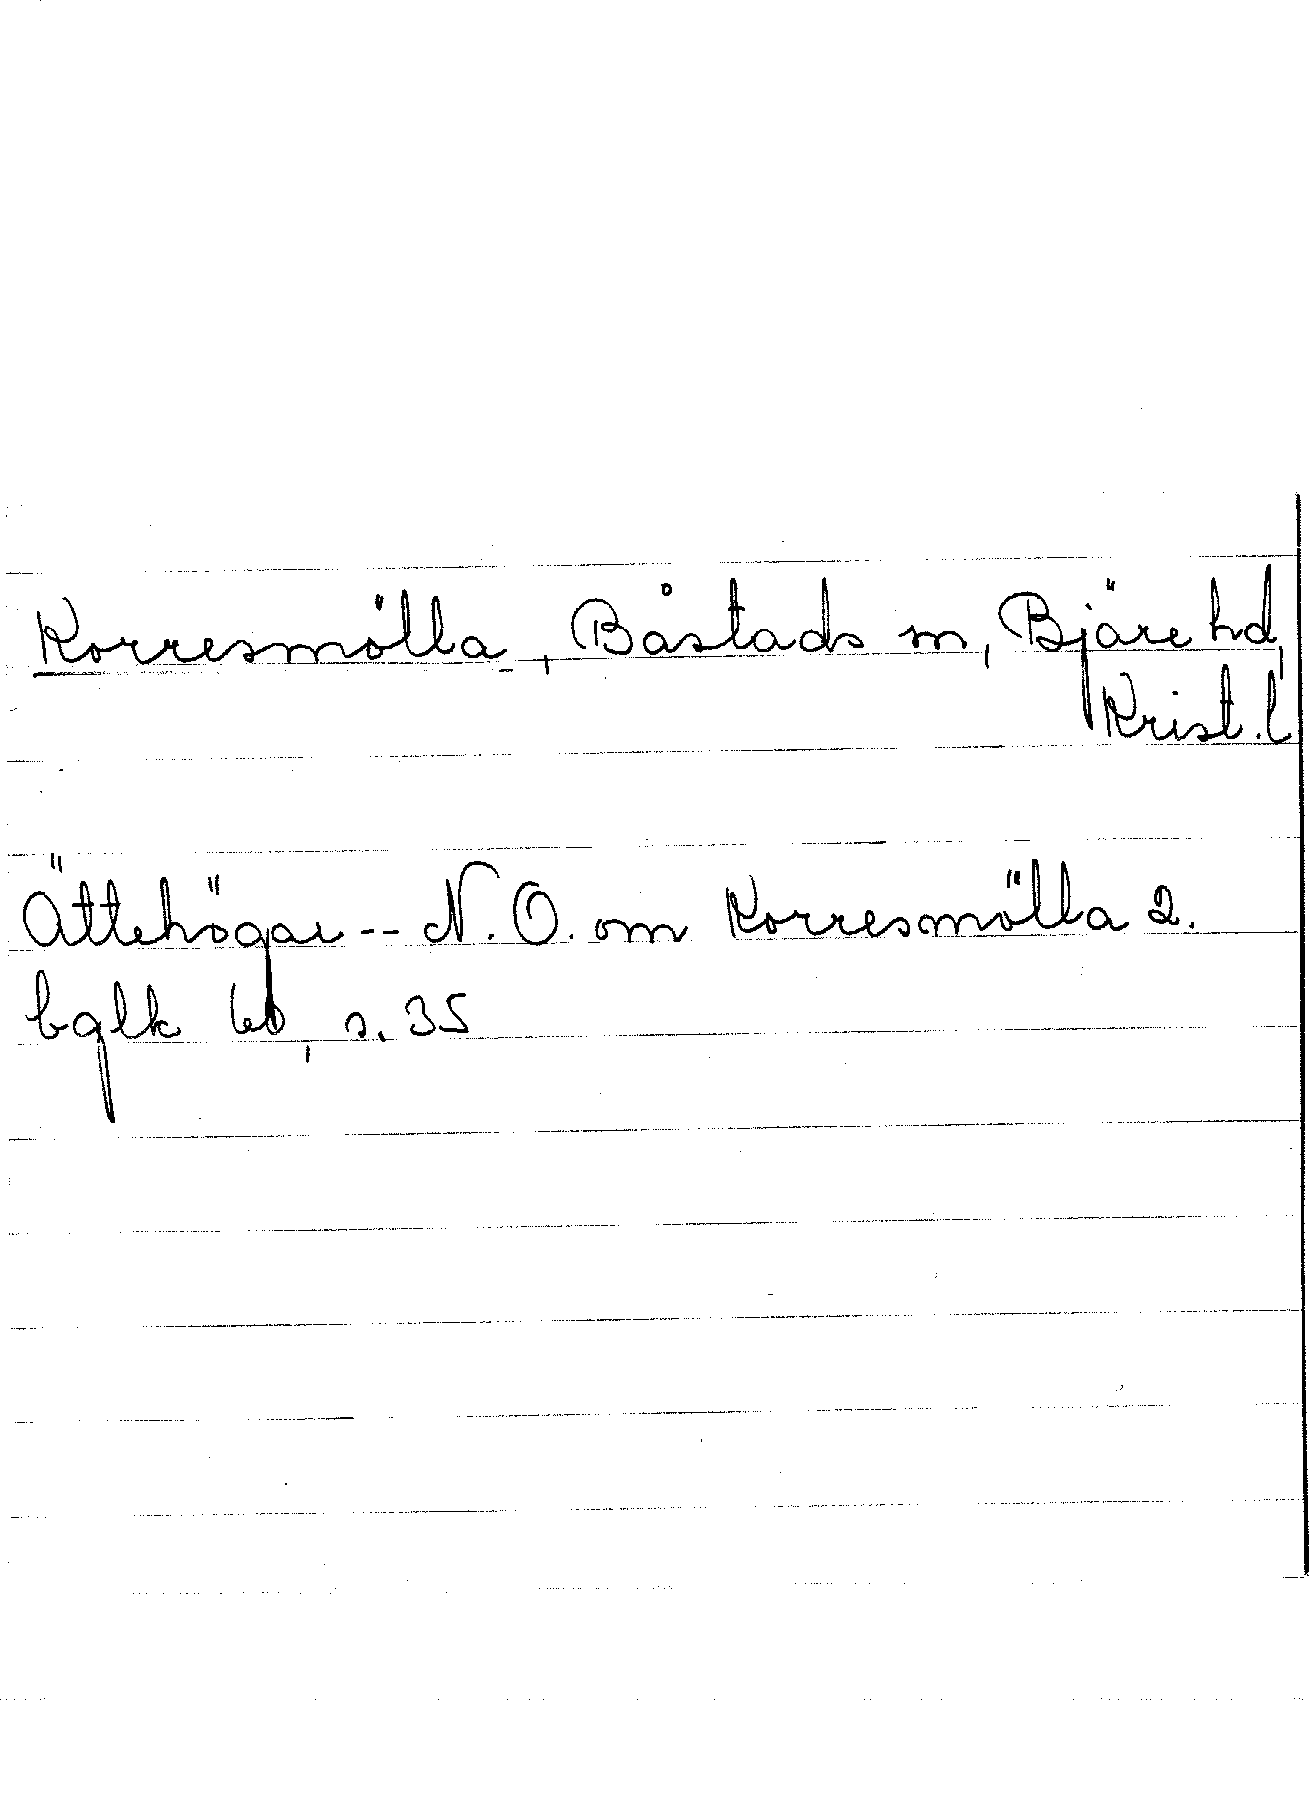 Korresmölla, Båstads sn, Bjäre hd,
Krist. l
Ättehögar -- N.O. om Korresmölla 2.
bglk 60, s. 35